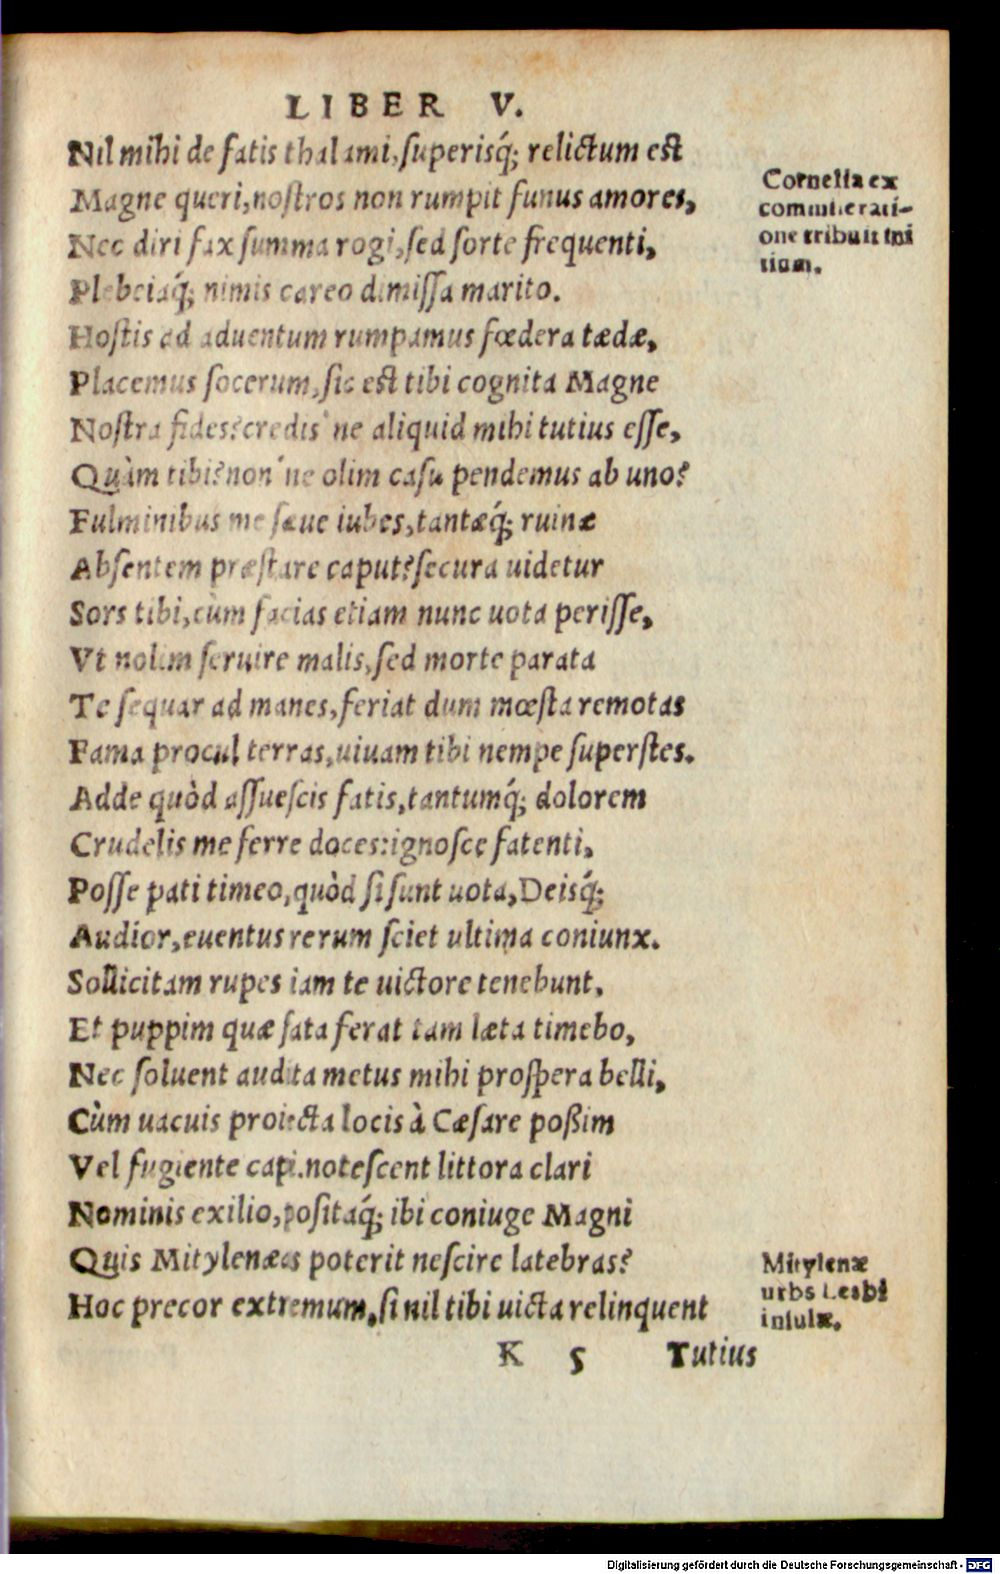 LIBER V.
Nil mihi de fatis thalami, superisq́; relictum est
Magne queri, nostros non rumpit funus amores,
Nec diri fax summa rogi, sed sorte frequenti,
Plebeiaq́; nimis careo dimissa marito.
Hostis ad aduentum rumpamus fœdera tædæ,
Placemus socerum, sic est tibi cognita Magne
Nostra fides? credis'ne aliquid mihi tutius esse,
Quàm tibi? non'ne olim casu pendemus ab uno?
Fulminibus me sæue iubes, tantæq́; ruinæ
Absentem præstare caput? secura uidetur
Sors tibi, cùm facias etiam nunc uota perisse,
Vt nolim seruire malis, sed morte parata
Te sequar ad manes, feriat dum mœsta remotas
Fama procul terras, uiuam tibi nempe superstes.
Adde quòd assuescis fatis, tantumq́; dolorem
Crudelis me ferre doces: ignosce fatenti,
Posse pati timeo, quòd si sunt uota, Deisq́;
Audior, euentus rerum sciet ultima coniunx.
Sollicitam rupes iam te uictore tenebunt,
Et puppim quæ fata ferat tam læta timebo,
Nec soluent audita metus mihi prospera belli,
Cùm uacuis proiecta locis à Cæsare poßim
Vel fugiente capi. notescent littora clari
Nominis exilio, positaq́; ibi coniuge Magni
Quis Mitylenæas poterit nescire latebras?
Hoc precor extremum, si nil tibi uicta relinquent
K 5 Tutius
Cornelia ex
commiserati-
one tribuit ini
tium.
Mitylenæ
urbs Lesbi
insulæ.
Digitalisierung gefördert durch die Deutsche Forschungsgemeinschaft - DFG